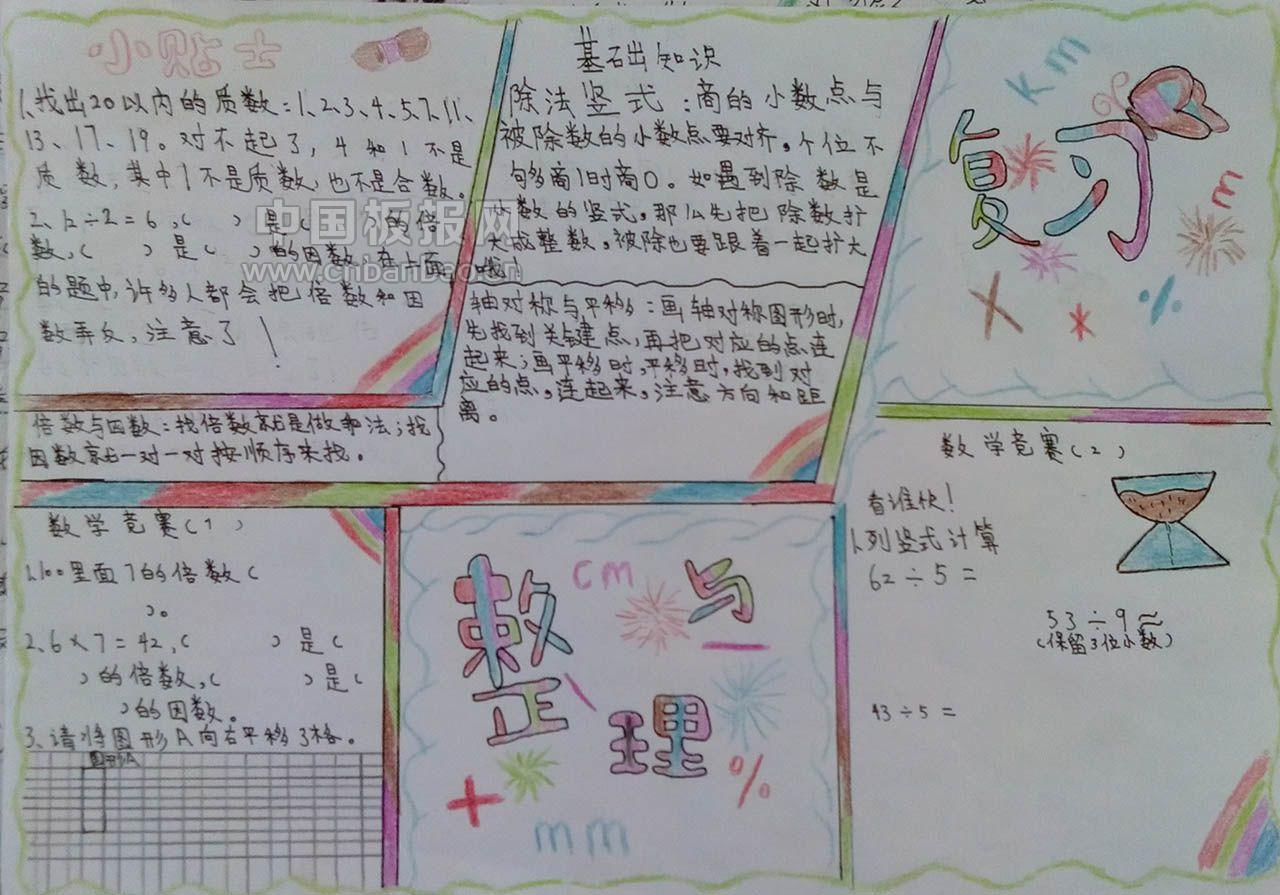 小贴士
1、找出20以内的质数：1、2、3、4、5、7、11、
13、17、19。对不起了，4和1不是
质数，其中1不是质数，也不是合数。
2、12÷2=6，（ ）是（ ）的倍
数，（ ）是（ ）的因数，在上面
的题中，许多人都会把倍数和因
数弄反，注意了！
中国板报网
www.cnbanbao.cn
倍数与因数：找倍数就是做乘法；找
因数就一对一对按顺序来找。
基础知识
除法竖式：商的小数点与
被除数的小数点要对齐。个位不
够商1时商0。如遇到除数是
小数的竖式，那么先把除数扩
大成整数。被除也要跟着一起扩大
哦！
轴对称与平移：画轴对称图形时，
先找到关键点，再把对应的点连
起来；画平移时，平移时，找到对
应的点，连起来，注意方向和距
离。
km
复习
m
× * ÷
数学竞赛（1）
1、100里面7的倍数（
）。
2、6×7=42，（ ）是（
）的倍数，（ ）是（
）的因数。
3、请将图形A向右平移3格。
图形A
cm
整与
理
+
%
mm
数学竞赛（2）
看谁快！
1、列竖式计算
62÷5=
53÷9≈
（保留3位小数）
43÷5=